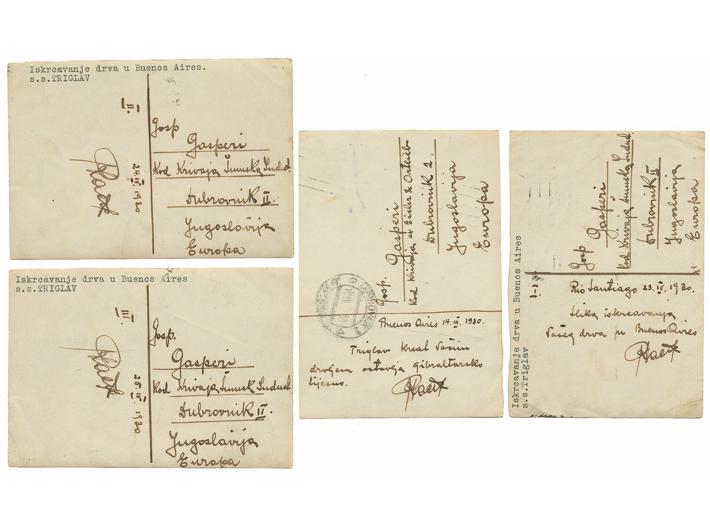 Iskrcavanje drva u Buenos Aires.
s.s.TRIGLAV
II.
24. IV 1930
Gosp
Gasperi
Kod Krivaja Šumska Indust.
Dubrovnik II.
Jugoslavija
Europa
Iskrcavanje drva u Buenos Aires
s.s.TRIGLAV
III.
25. IV 1930
Gosp.
Gasperi
Kod Krivaja Šumsk Indust
Dubrovnik II.
Jugoslavija
Europa
Gosp.
Gasperi
Kod Krivaja
Dubrovnik 2.
Jugoslavija
Europa
Buenos Aires 14. 1930.
Triglav kreat Vašim
drvljem ostavlja gibraltarsko
tijesno.
Iskrcavanje drva u Buenos Aires
s.s.Triglav
I-i
Gosp
Gasperi
Kod Krivaja Šumska Indust.
Dubrovnik II
Jugoslavija
Europa
Rio Santiago 23. IV. 1930.
Slika iskrcavanja
Vašeg drva u Buenos Aires